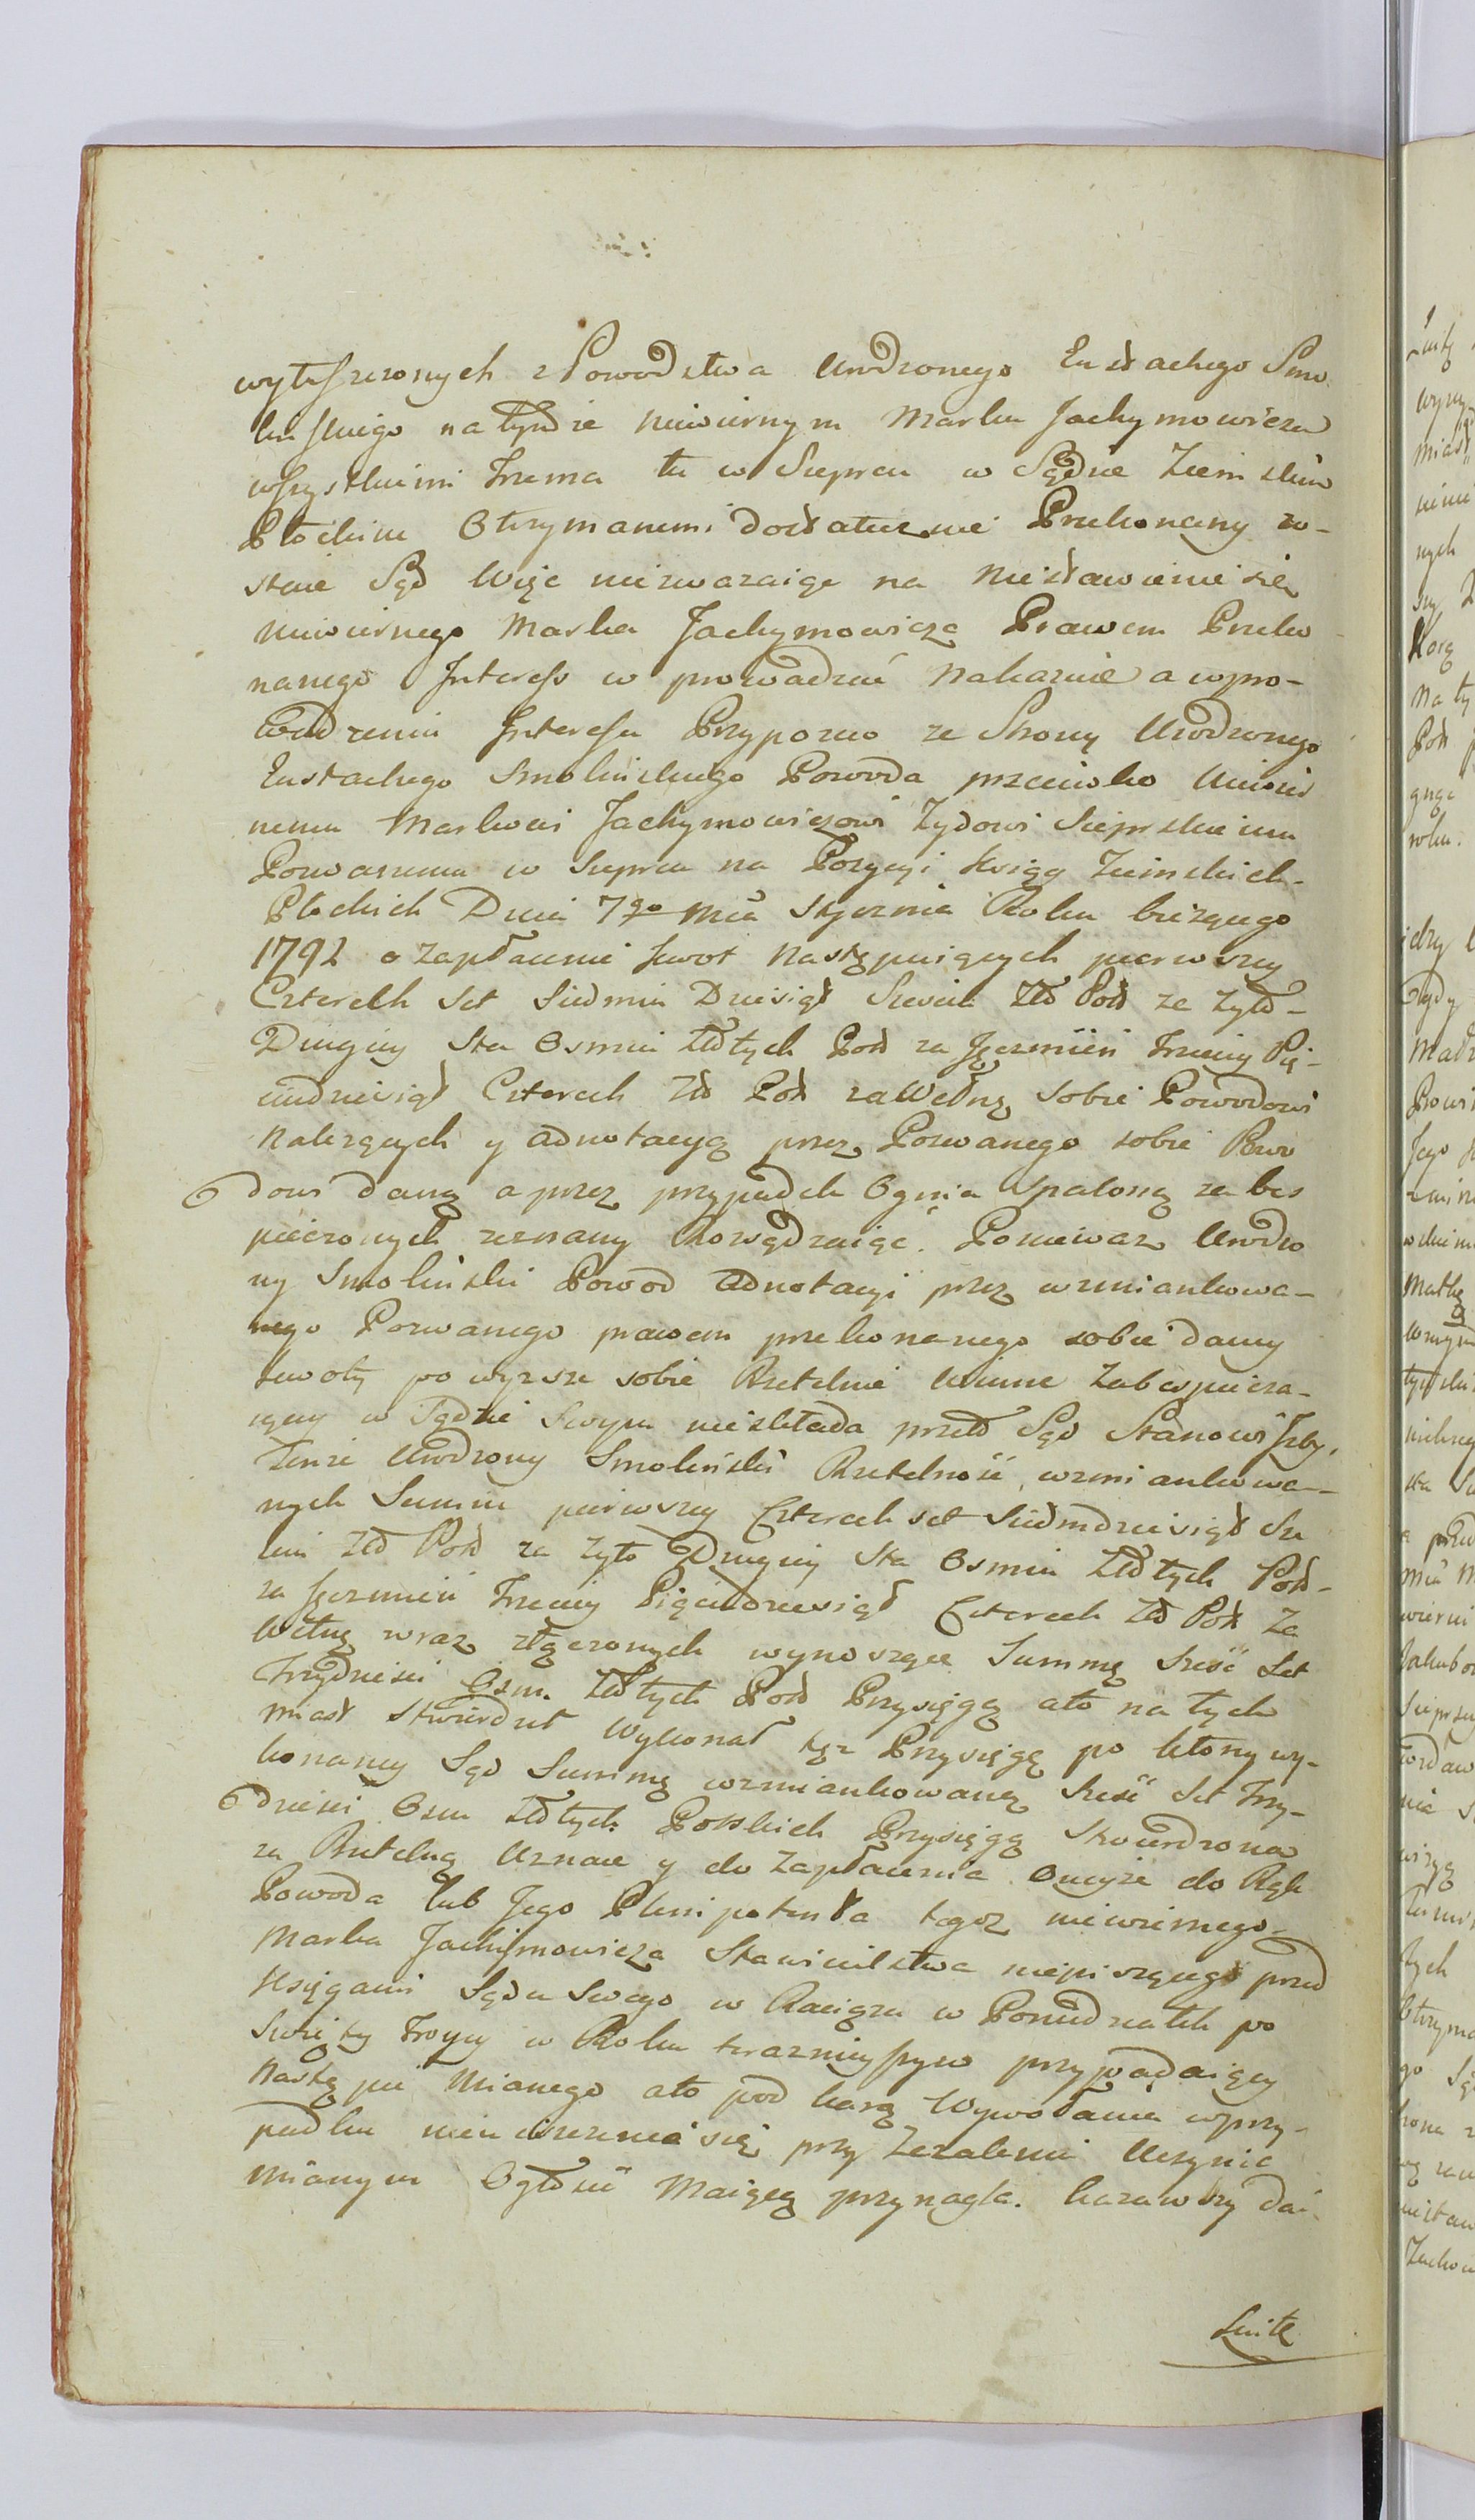 wytoszczonych z Powodztwa Urodzonego Eustachego Smo-
linskiego na Żydzie niewiernym Marku Jachymowiczu
wszystkiemi Trzema tu w Sieprcu w Sądzie Ziemskim
Płockim Otrzymanemi dostatecznie Przekonany zo-
staie Sąd Więc niezwazaiąc na Niestawienie się
niewiernego Marka Jachymowicza Prawem Przeko
nanego Interess w prowadzić Nakazuie a w pro-
wadzeniu Interessu Przypozwu ze Strony Urodzonego
Eustachego Smolinskiego Powoda przeciwko Niewier
nemu Markowi Jachymowiczowi Żydowi Sieprskiemu
Pozwanemu w Sieprcu na Pozycyi Ksiąg Ziemskich
Płockich Dnia 7go Mca Stycznia Roku bieżącego
1792 o Zapłacenie kwot Następuiących pierwszey
Czterech Set Siedmiu Dziesiąt Sześciu Złł Poll za Zyto-
Drugiey Sta Osmiu Złłtych Poll za Jęczmień Trzeciey Pię-
ciudziesiąt Czterech Złł Poll za Wełnę sobie Powodowi
Należących y adnotacyą przez Pozwanego sobie Powo
dowi daną a przez przypadek Ognia Spaloną zabes
pieczonych zeznany Rozsądzaiąc. Ponieważ Urodzo
ny Smolinski Powod Adnotacyi przez wzmiankowa-
nego Pozwanego prawem przekonanego sobie daney
kwoty powyzsze sobie Rzetelnie Winne Zabespiecza-
iącey w Sądzie Swym nieskłada przeto Sąd Stanowi Izby,
Tenże Urodzony Smolinski Rzetelność wzmiankowa-
nych Summ pierwszey Czterech set Siedmdziesiąt Sze
ściu Złł Poll za Zyto Drugiey Sta Osmiu Złłtych Poll-
za Jęczmień Trzeciey Pięciudziesiąt Czterech Złł Poll za
Wełnę wraz złączonych wynoszące Summę Sześć Set
Trzydzieści Osm. Złłtych Poll Przysięgą ato na tych
miast Stwierdził Wykonał tęż Przysięgę po ktorey wy-
konaney Sąd Summę wzmiankowaną Sześć Set Trzy-
dzieści Osm Złłtych Polskich Przysięgą Stwierdzoną
za Rzetelną Uznaie y do Zapłacenia Oneyże do Rąk
Powoda lub Jego Plenipotenta tegoż niewiernego
Marka Jachymowicza Stawicielstwa niepiszącego przed
Księgami Sądu Swego w Raciążu w Poniedziałek po
Swięty Troycy w Roku teraznieyszym przypadaiącey
Następnie Mianego ato pod karą Wywołania w przy-
padku nieuiszczenia się przy Zezaleniu Uczynić
Mianym Ogłosić Maiącą przynagla. kazawszy dać
Kwitt